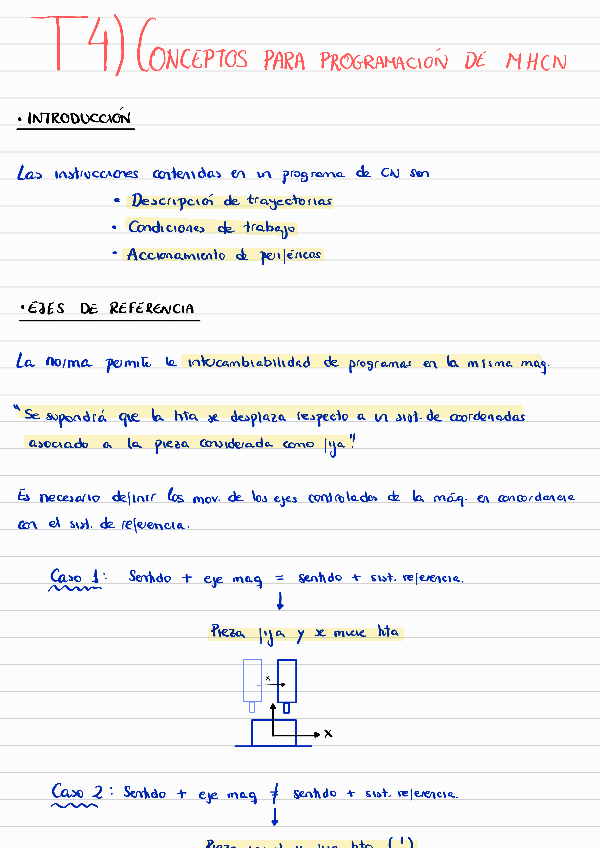 T4) CONCEPTOS PARA PROGRAMACIÓN DE MHCN
• INTRODUCCIÓN
Las instrucciones contenidas en un programa de CN son
• Descripción de trayectorias
• Condiciones de trabajo
• Accionamiento de periféricos
• EJES DE REFERENCIA
La norma permite la intercambiabilidad de programas en la misma maq.
"Se supondrá que la hta se desplaza respecto a un sist. de coordenadas
asociado a la pieza considerada como fija"
Es necesario definir los mov. de los ejes controlados de la máq. en concordancia
con el sist. de referencia.
Caso 1: Sentido + eje maq = sentido + sist. referencia.
↓
Pieza fija y se mueve hta
x
x
Caso 2: Sentido + eje maq ≠ sentido + sist. referencia.
↓
Pieza